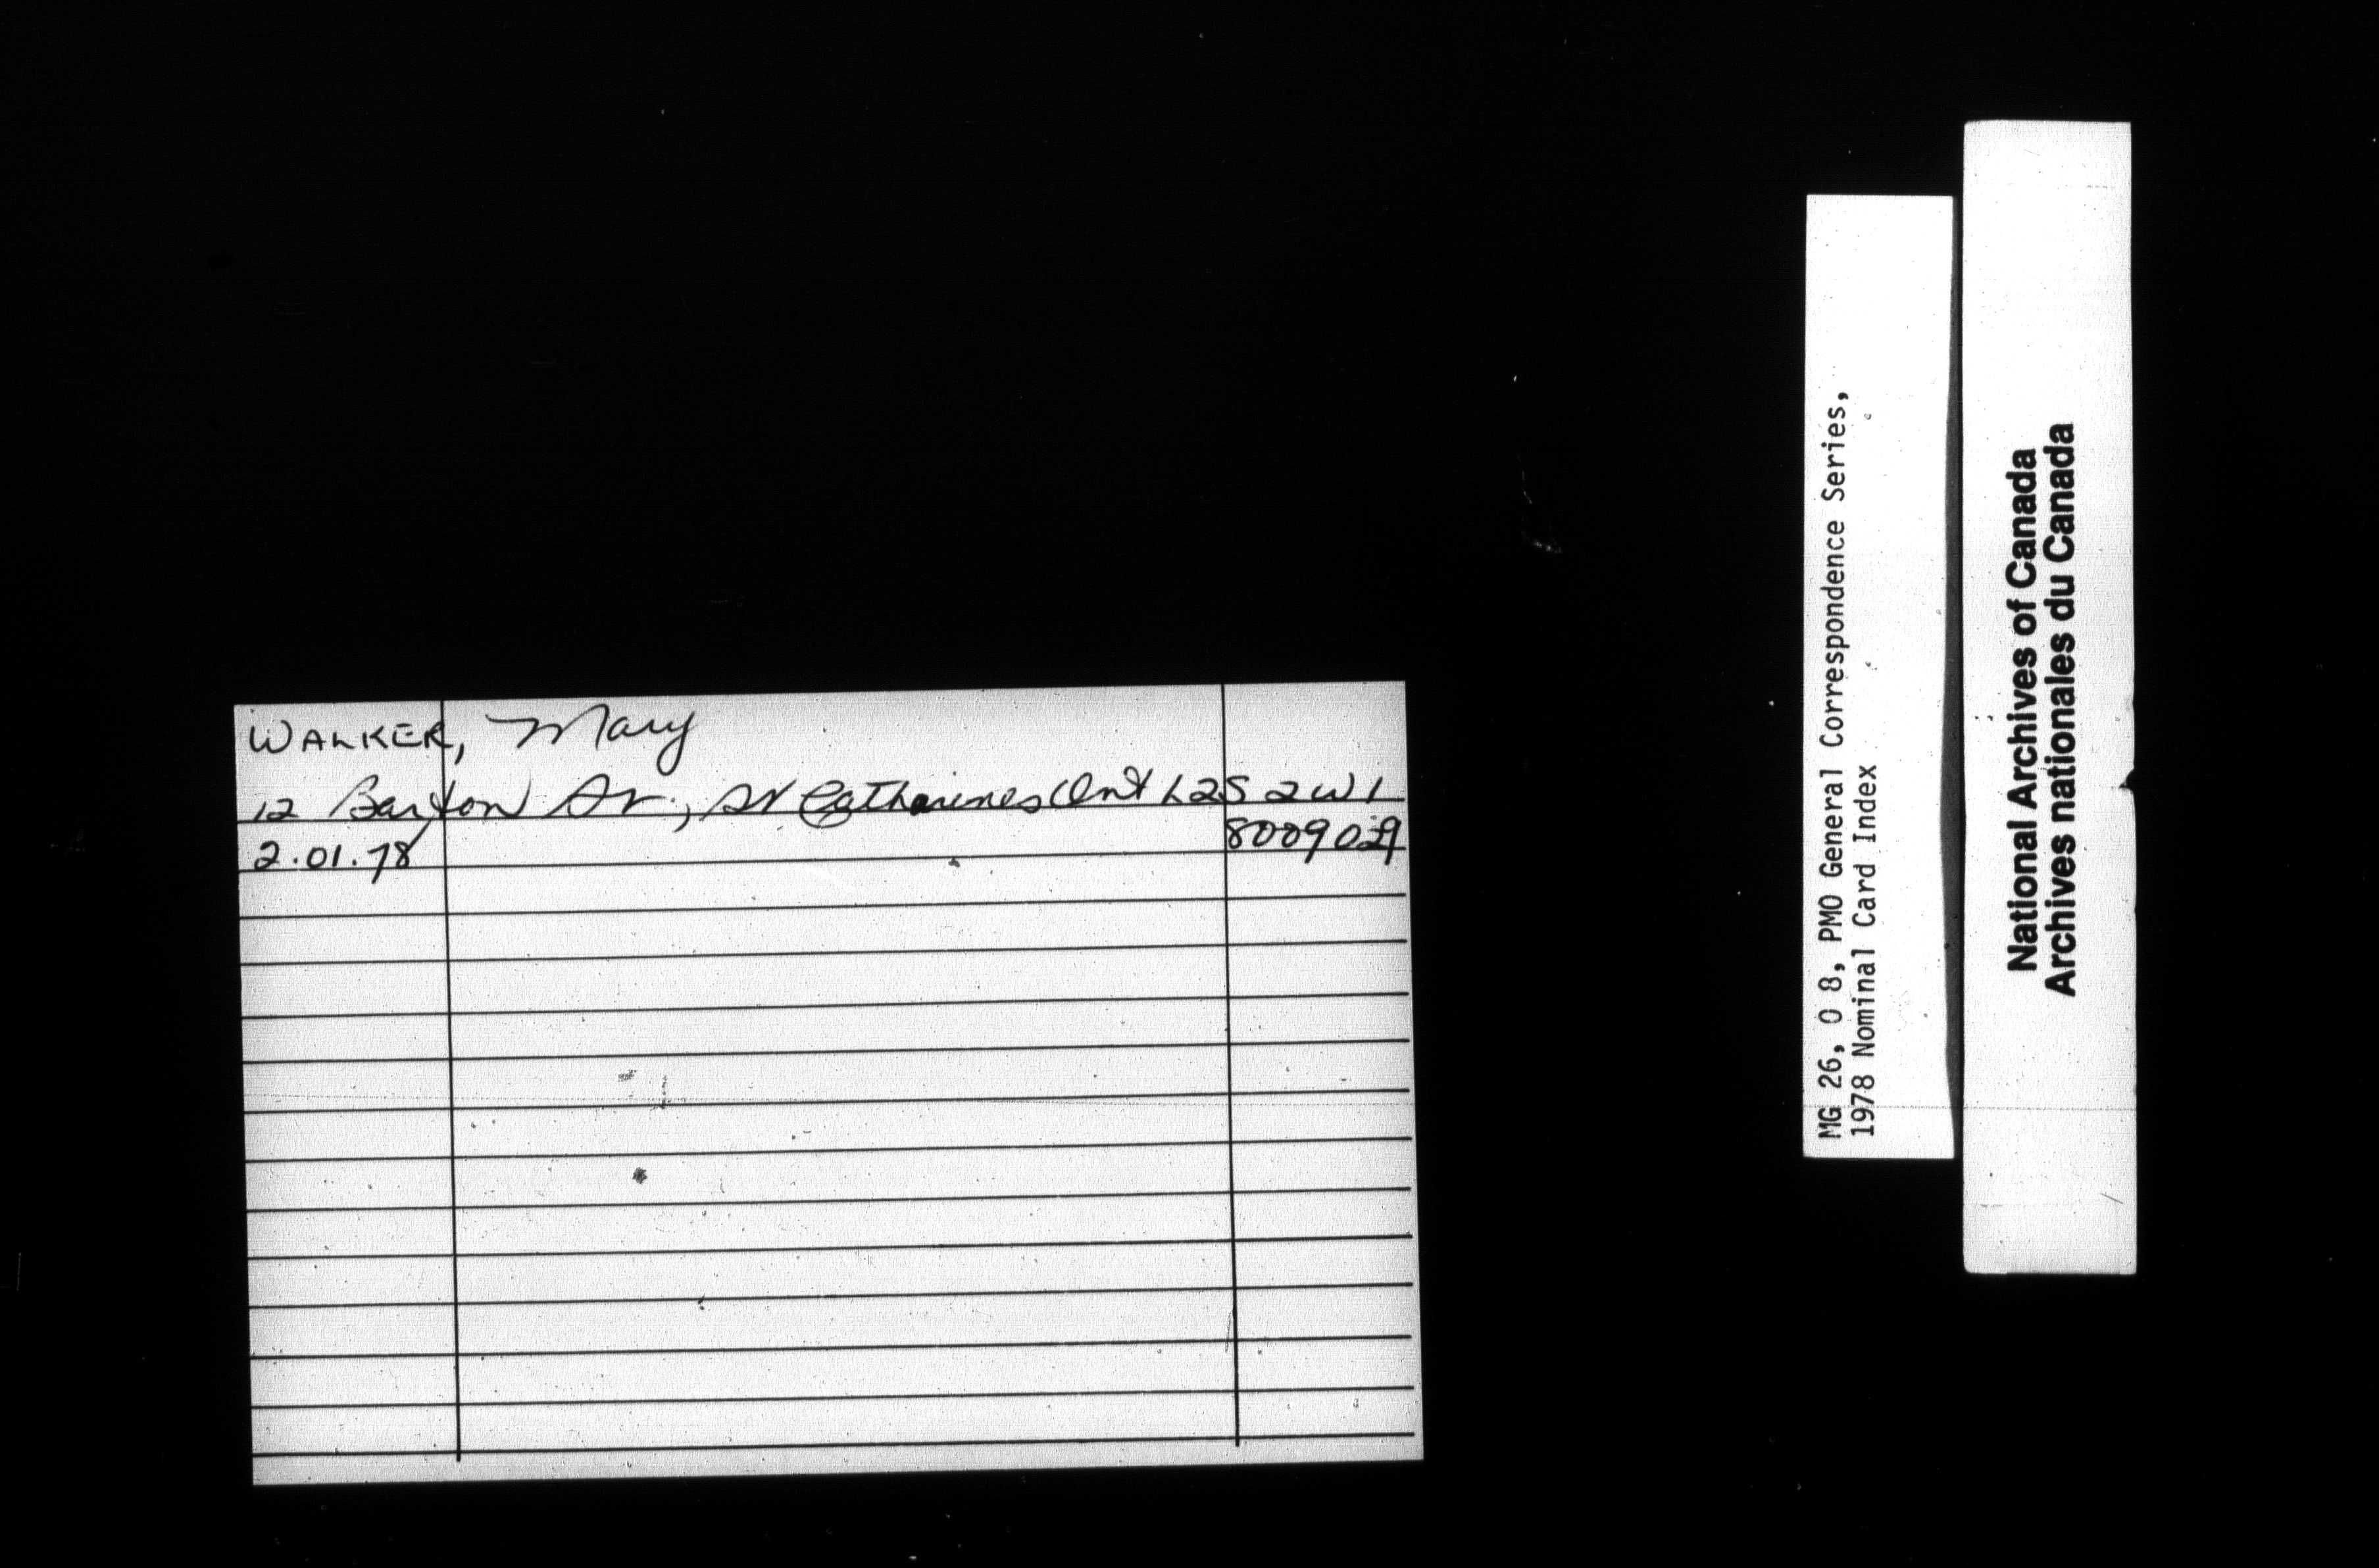 WALKER, Mary
12 Barton St., St Catharines Ont L2S 2W1
2.01.78 8009029
MG 26, O 8, PMO General Correspondence Series,
1978 Nominal Card Index
National Archives of Canada
Archives nationales du Canada